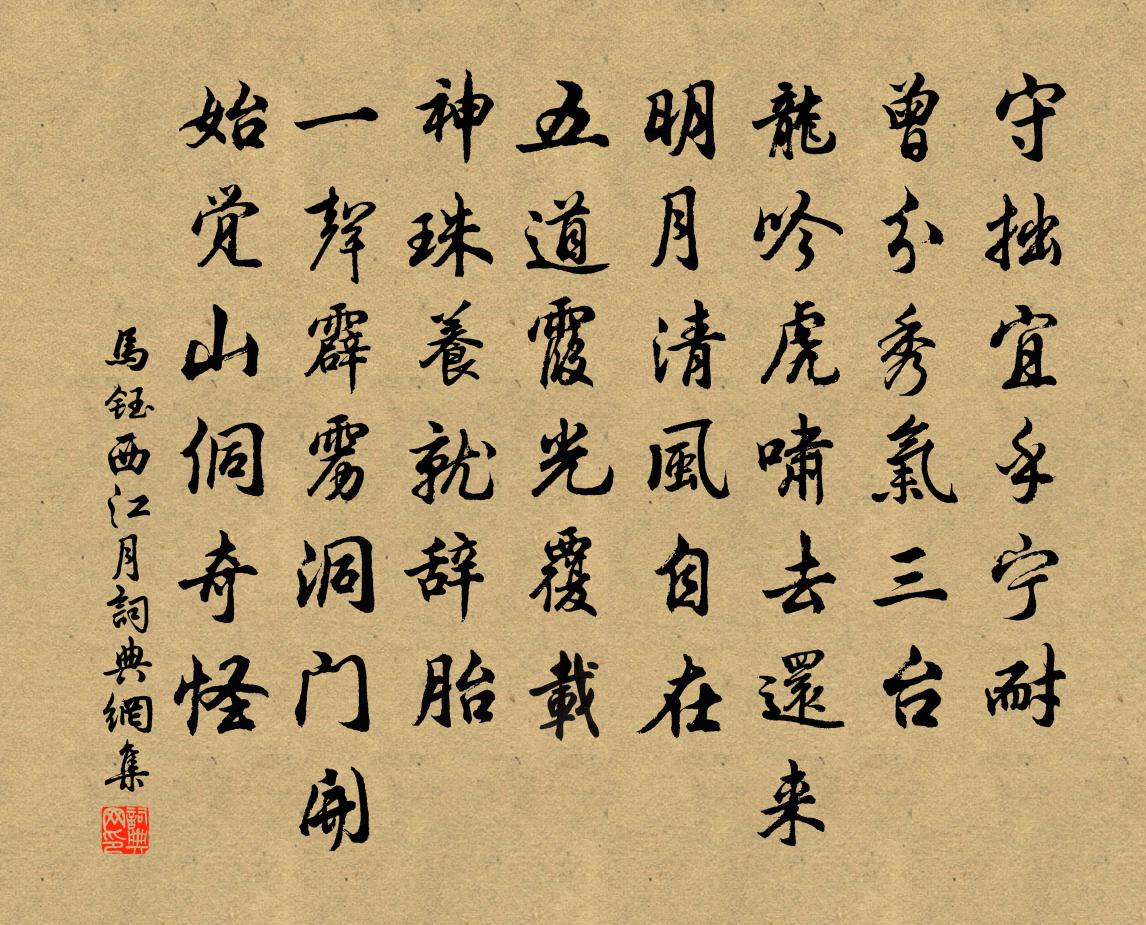 守拙宜乎宁耐
曾分秀氣三台
龍吟虎嘯去還来
明月清風自在
五道霞光覆載
神珠養就辞胎
一聲霹雳洞门開
始觉山侗奇怪
馬鈺西江月詞典網集
詞典网印